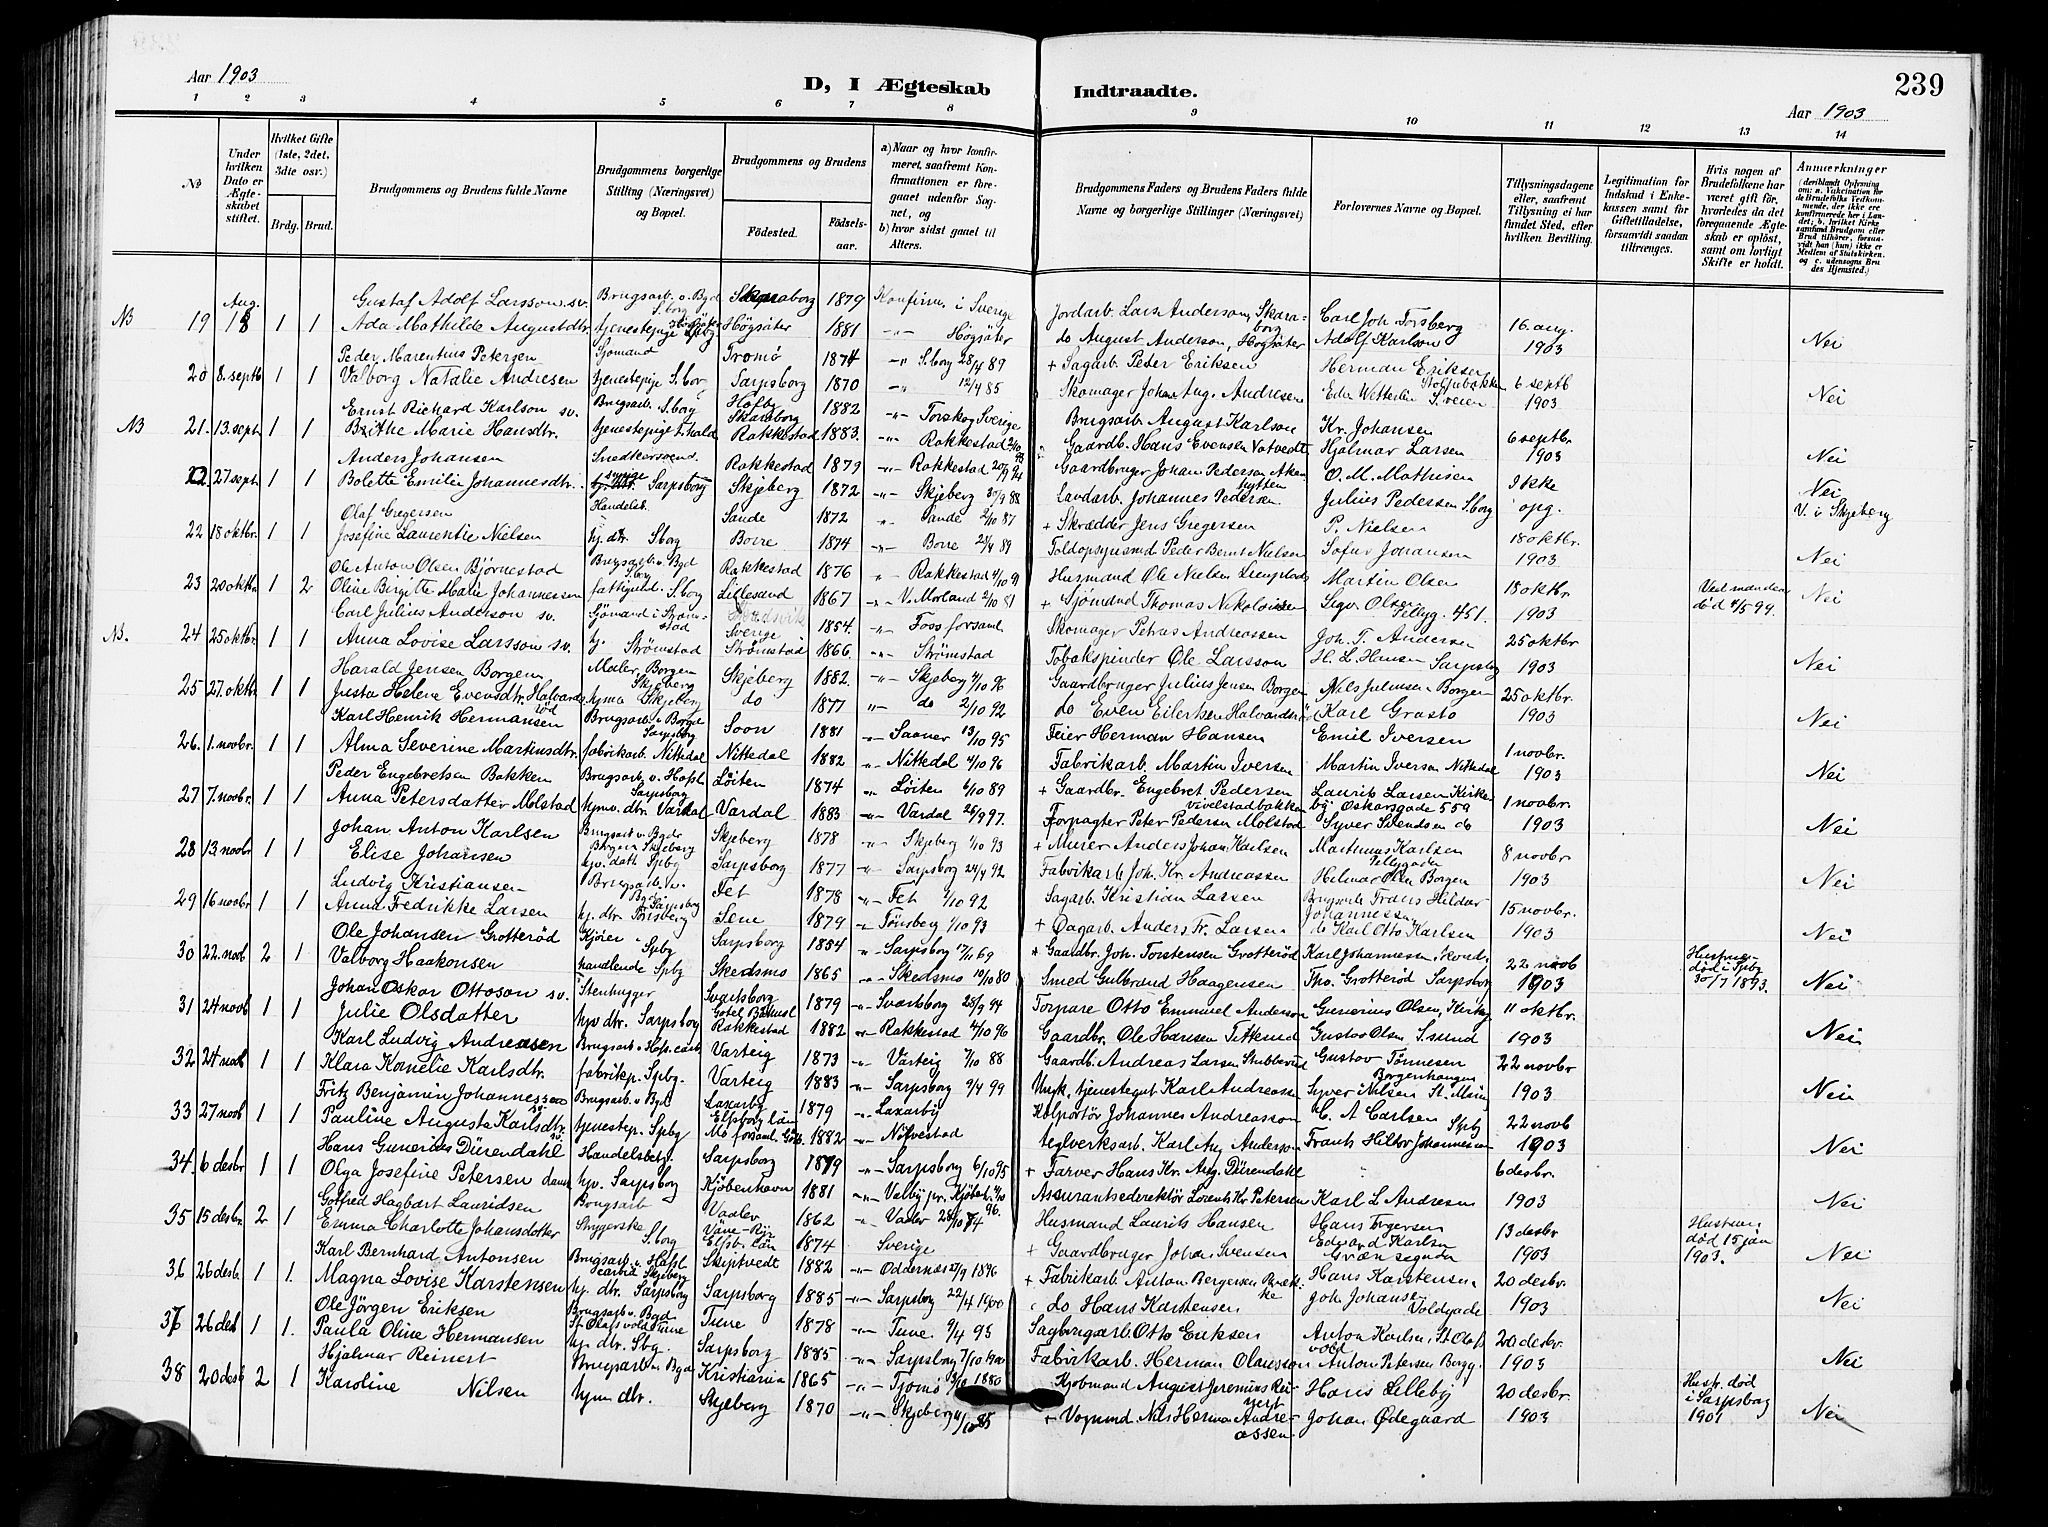 Aar 1903
D, I Ægteskab Indtraadte.
239
Aar 1903
1 2 3 4 5 6 7 8 9 10 11 12 13 14
No
Under hvilken Dato er Ægteskabet stiftet.
Hvilket Gifte (1ste, 2det, 3die osv.)
Brdg. Brud.
Brudgommens og Brudens fulde Navne
Brudgommens borgerlige Stilling (Næringsvei) og Bopæl.
Brudgommens og Brudens
Fødested. Fødselsaar.
a) Naar og hvor konfirmeret, saafremt Konfirmationen er foregaaet udenfor Sognet, og
b) hvor sidst gaaet til Alters.
Brudgommens Faders og Brudens Faders fulde Navne og borgerlige Stillinger (Næringsvei)
Forlovernes Navne og Bopæl.
Tillysningsdagene eller, saafremt Tillysning ei har fundet Sted, efter hvilken Bevilling.
Legitimation for Indskud i Enkekassen samt for Giftetilladelse, forsaavidt saadan tiltrænges.
Hvis nogen af Brudefolkene har været gift før, hvorledes da det foregaaende Ægteskab er opløst, samt om lovligt Skifte er holdt.
Anmærkninger
(deriblandt Oplysning om: a. Vakcination for de Brudefolks Vedkommende, der ikke ere konfirmerede her i Landet; b. hvilket Kirkesamfund Brudgom eller Brud tilhører, forsaavidt han (hun) ikke er Medlem af Statskirken. og c. udensogns Brudes Hjemsted.)
Gustaf Adolf Larsson sv. Brugsarb. v. Bgd S.borg Skaraborg 1879 Konfirm. i Sverige Jordarb. Lars Anderson, Skaraborg Carl Joh. Forsberg 16 aug.
NB 19 Aug. 18 1 1 Ada Mathilde Augustdtr. tjenestepige Høgsäter 1881 -"- Høgsäter do August Anderson, Høgsäter Adolf Karlson 1903 Nei
Peder Marentius Petersen Sjømand Tromö 1874 -"- S.borg 28/4 89 + Sagarb. Peder Eriksen Herman Eriksen
20 8. septb 1 1 Valborg Natalie Andresen tjenestepige S.bor Sarpsborg 1870 -"- 12/4 85 Skomager Johan Aug. Andresen 6 septb 1903 Nei
Ernst Richard Karlson sv. Brugsarb. S.borg Skaraborg 1882 -"- Torskog Sverige Brugsarb August Karlson Kr. Johansen 6 septbr.
NB 21. 13. sept 1 1 Brithe Marie Hansdtr. tjenestepige Rakkestad 1883. -"- Rakkestad Gaardb. Hans Evensen Vatvedt Hjalmar Larsen 1903 Nei
Anders Johansen Snedkersvend. Rakkestad 1879 -"- Rakkestad Gaardbruger Johan Pedersen O. M. Mathisen Ikke
27 sept 1 1 Bolette Emilie Johannesdtr. Sarpsborg Skjeberg 1872 -"- Skjeberg 30/9 88 Landarb. Johannes Pedersen Julius Pedersen S.borg opg. Nei V. i Skjeberg
Olaf Gregersen Handelsb. Sande 1872 -"- Sande 2/10 87 + Skrædder Jens Gregersen P. Nielsen 18 oktbr.
22 18 oktbr. 1 1 Josefine Laurentie Nielsen hj. dtr. Sborg Borre 1874 -"- Borre 28/4 89 Toldopsynsmd Peder Bernt Nielsen Sofus Johansen 1903 Nei
Ole Anton Olsen Bjørnestad Brugsarb v Bgd Sborg Rakkestad 1876 " Rakkestad 4/10 91 Husmand Ole Nielsen Martin Olsen 18 oktbr.
23 20 oktbr. 1 2 Oline Birgitte Marie Johannessen S.borg Lillesand 1867 -"- V. Morland 2/10 81 + Sjømand Thomas Nikolaisen 1903 Ved manden død 4/5 94. Nei
Carl Julius Anderson sv. Sjömand i Strømstad Sverige 1854. -"- Foss forsaml Skomager Petrus Andreassen Joh. T. Andersen 25 oktbr
NB. 24 25 oktbr. 1 1 Anna Lovise Larsson sv. hj. Strømstad Strømstad 1866. -"- Strømstad Tobakspinder Ole Larsson H. L. Hansen Sarpsbg 1903 Nei
Harald Jensen Borgen Maler, Borgen Skjeberg Skjeberg 1882. -"- Skjeberg 4/10 96 Gaardbruger Julius Jensen Borgen Nils Juliusen Borgen 25 oktbr.
25 27. oktbr 1 1 Justa Helene Evensdtr. Halvardsrød Skjeberg do 1877 -"- do 2/10 92 do Even Eilertsen Halvardsrød Karl Grasto 1903 Nei
Karl Henrik Hermansen Brugsarb v Borgd Sarpsborg Soon 1881 -"- Saaner 13/10 95 Feier Herman Hansen Emil Iversen 1 novbr
26. 1. novbr. 1 1 Alma Severine Martinsdtr. fabrikarb. Nittedal Nittedal 1882 -"- Nittedal 4/10 96 Fabrikarb. Martin Iversen Martin Iversen Nittedal 1903 Nei
Peder Engebretsen Bakken Brugsarb. v. Hafsl Sarpsborg Løiten 1874 -"- Løiten 6/10 89 + Gaardbr. Engebret Pedersen Laurits Larsen Kirkeby Oskarsgade 559 1 novbr.
27 7. novbr. 1 1 Anna Petersdatter Molstad hjmv. dtr. Vardal Vardal 1883 -"- Vardal 26/9 97. Forpagter Peter Pedersen Molstad Syver Svendsen do 1903 Nei
Johan Anton Karlsen Brugsarb v. Bgdr Borgen Skjeberg Skjeberg 1878 -"- Skjeberg 1/10 93 + Murer Anders Johan Karlsen Martinus Karlsen 8 novbr
28 13. novbr 1 1 Elise Johansen hjv. datt Spbg Sarpsborg 1877 -"- Sarpsborg 24/4 92 Fabrikarb. Joh. Kr. Andreassen Hilmar Olsen Borgen 1903 Nei
Ludvig Kristiansen Brugsarb. v. Sarpsborg Fet 1878 -"- Fet 1/10 92 Sagarb. Kristian Larsen Frans Hildor Johannessen 15 novbr.
29 16 novbr. 1 1 Anna Fredrikke Larsen hj. dtr. Sem 1879 -"- Tønsberg 1/10 93 + Dagarb. Anders Fr. Larsen do Karl Otto Karlsen 1903 Nei
Ole Johansen Grotterød Kjører Spbg Sarpsborg 1854 -"- Sarpsborg 17/11 69 + Gaardbr. Joh. Torstensen Grotterød Karl Johannesen 22 novb
30 22. novb 2 1 Valborg Haakonsen handlende Spbg Skedsmo 1865 -"- Skedsmo 10/10 80 Smed Gulbrand Haagensen Tho. Grotterød Sarpsborg 1903 Hustruen død i Spbg 30/7 1893. Nei
Johan Oskar Ottoson sv. Stenhugger Svartsborg 1879 -"- Svartsborg 28/9 94 Torpare Otto Emmuel Anderson Gunerius Olsen, Kirkeg 11 oktbr.
31 24 novb 1 1 Julie Olsdatter hjv dtr. Sarpsborg Rakkestad 1882 " Rakkestad 4/10 96 Gaardbr. Ole Hansen Gustav Olsen 1903 Nei
Karl Ludvig Andreasen Brugsarb v. Hafs. carb Varteig 1873 -"- Varteig 7/10 88 Gaardb. Andreas Larsen Stubberud Gustav Tønnesen 22 novbr
32 24 novb 1 1 Klara Kornelie Karlsdtr. fabrikp. Spbg. Varteig 1883 -"- Sarpsborg 9/4 99 Karl Andreasen Syver Nilsen 1903 Nei
Fritz Benjamin Johannesson Brugsarb. v Bgd Laxarby 1879 -"- Laxarby Kolportör Johannes Andreasson C. A Carlsen Spbg 22 novb
33 27 novb 1 1 Pauline Augusta Karlsdtr. sv. tjenestep. Spbg 1882 -"- Teglverksarb. Karl Aug. Anderson Frants Hildor Johannessen 1903 Nei
Hans Gunerius Dürendahl Handelsbetj. Sarpsborg 1879 -"- Sarpsborg 6/10 95 + Farver Hans Kr. Aug. Dürendahl 6 desbr.
34 6 desbr 1 1 Olga Josefine Petersen dansk hjv. Sarpsborg Kjöbenhavn 1881 -"- Valby Assurantsedirektör Lorents Kr Petersen Karl L Andresen 1903 Nei
Gotfred Hagbart Lauridsen Brugsarb Vaaler 1862 " Vaaler Husmand Laurits Hansen Hans Torgersen 13 desbr
35 15 desbr. 2 1 Emma Charlotte Johansdotter Strygerske S.borg 1874 Sverige + Gaardbruger Johan Svensen Edvard Karlsen 1903 Hustruen død 15 jan 1903. Nei
Karl Bernhard Antonsen Brugsarb v. Hafsl carbid Skjeberg Skiptvedt 1882 -"- Oddernes 27/9 1896 + Fabrikarb. Anton Bergersen Hans Karstensen 20 desbr.
36 26 desb. 1 1. Magna Lovise Karstensen hj. dtr. Sarpsborg Sarpsborg 1885 -"- Sarpsborg 22/4 1900 do Hans Karstensen Joh. Johansen Voldgade 1903 Nei
Ole Jörgen Eriksen Brugsarb v. Bgd St. Olafs vold Tune Tune 1878 -"- Tune 9/4 93 Sagbrugarb. Otto Eriksen Anton Karlsen, St Olafs vold 20 desbr.
37 26 desb 1 1. Paula Oline Hermansen hj. dtr. Sbg. Sarpsborg 1885 -"- Sarpsborg 7/10 1900 Fabrikarb. Herman Olaussen Anton Petersen Borgg. 1903 Nei
Hjalmar Reinert Brugsarb v Bgd Kristiania 1865 -"- Tjømø 1880 Kjøbmand August Jeremius Reinert Hans Lilleby 20 desbr.
38 20 desb 2 1 Karoline Nilsen hjm dtr. Skjeberg 1870 -"- Skjeberg 4/10 85 + Vognmd Nils Herman Andreassen Johan Ødegaard 1903 Hustr. død i Sarpsborg 1901 Nei